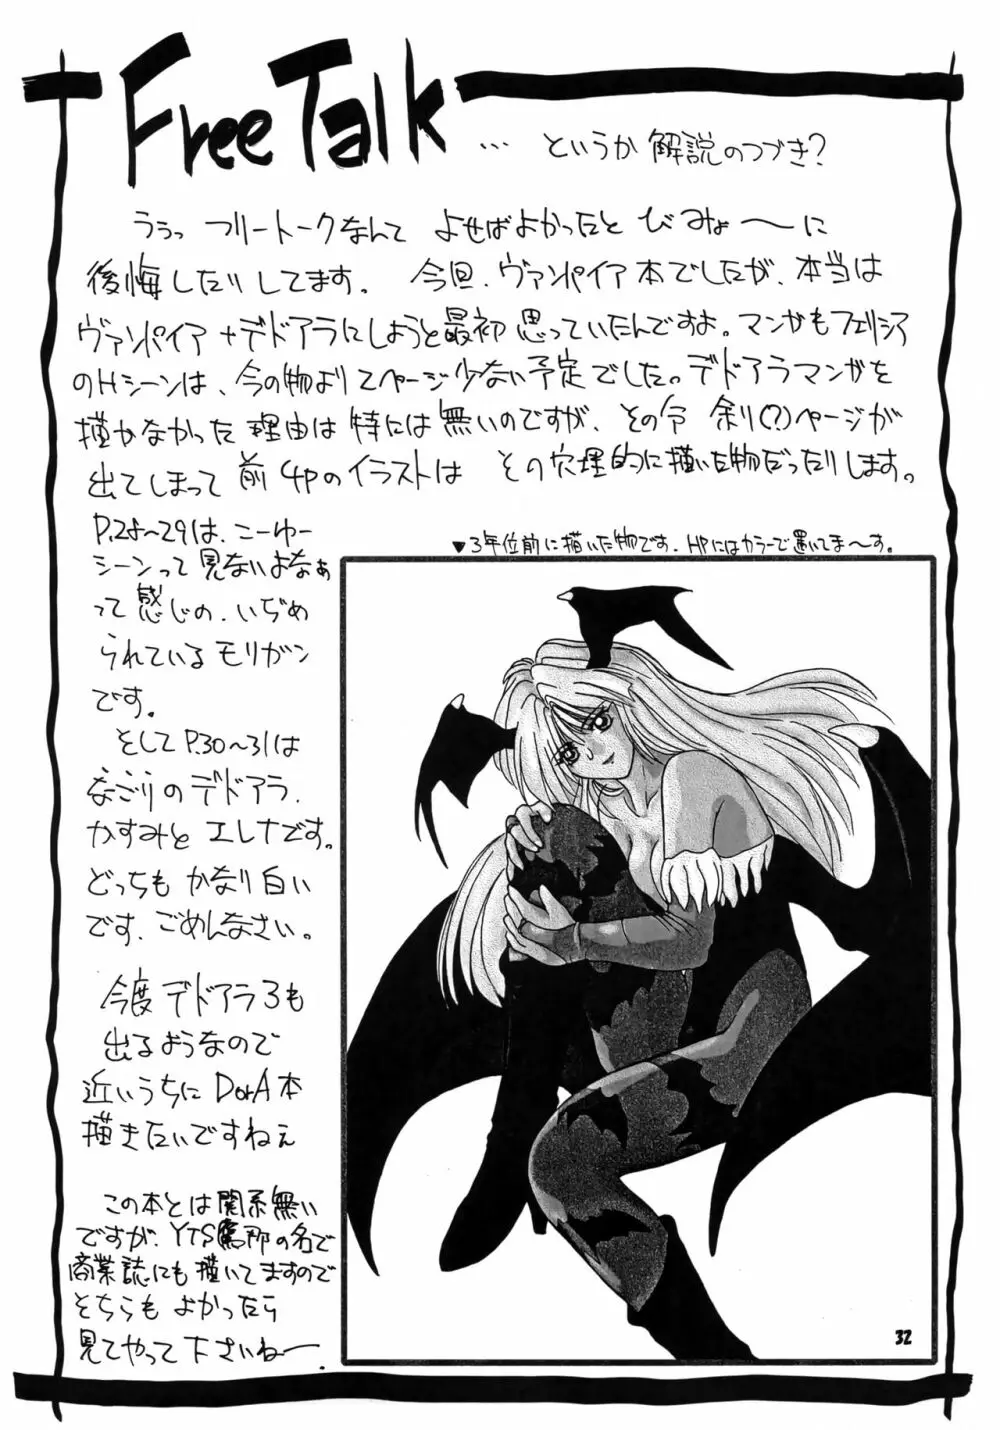 Free Talk
… というか 解説のつづき?
ううっ フリートークなんて よせばよかったと びみょ〜に
後悔したりしてます。 今回、ヴァンパイア本でしたが、本当は
ヴァンパイア+デドアラにしようと最初 思っていたんですよ。マンガもフェリシア
のHシーンは、今の物よりてページ少ない予定でした。デドアラマンガを
描かなかった理由は特には無いのですが、その分 余り(?)ページが
出てしまって 前4Pのイラストは その穴埋的に描いた物だったりします。
P.28〜29は、こーゆー
シーンって見ないよなぁ
って感じの、いぢめ
られているモリガン
です。
そしてP.30〜31は
なごりのデドアラ、
かすみと エレナです。
どっちも かなり白い
です、ごめんなさい。
今度デドアラ3も
出るようなので
近いうちに DorA本
描きたいですねぇ
この本とは関係無い
ですが、YTS
の名で
商業誌にも描いてますので
そちらも よかったら
見てやって下さいねー.
▼3年位前に描いた物です。HPにはカラーで置いてま〜す。
32